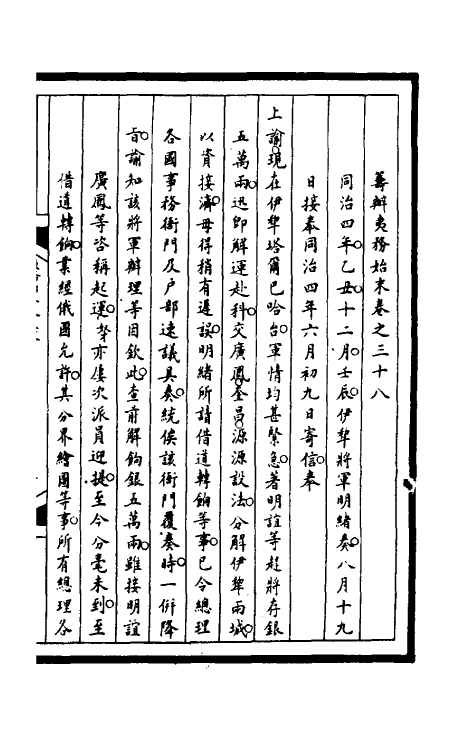 籌辦夷務始末卷之三十八
同治四年乙丑十二月壬辰伊犂將軍明緒奏八月十九
日接奉同治四年六月初九日寄信奉
上諭現在伊犂塔爾巴哈台軍情均甚緊急著明誼等趕將存銀
五萬兩迅卽解運赴科交廣鳳奎昌源源設法分解伊犂兩城
以資接濟毋得稍有遲誤明緒所請借道轉餉等事已令總理
各國事務衙門及户部速議具奏統俟該衙門覆奏時一併降
旨諭知該將軍辦理等因欽此查前解餉銀五萬兩雖接明誼
廣鳳等咨稱起運䓁亦屢次派員迎提至今分毫未到至
借道轉餉業經俄國允許其分界繪圖等事所有總理各